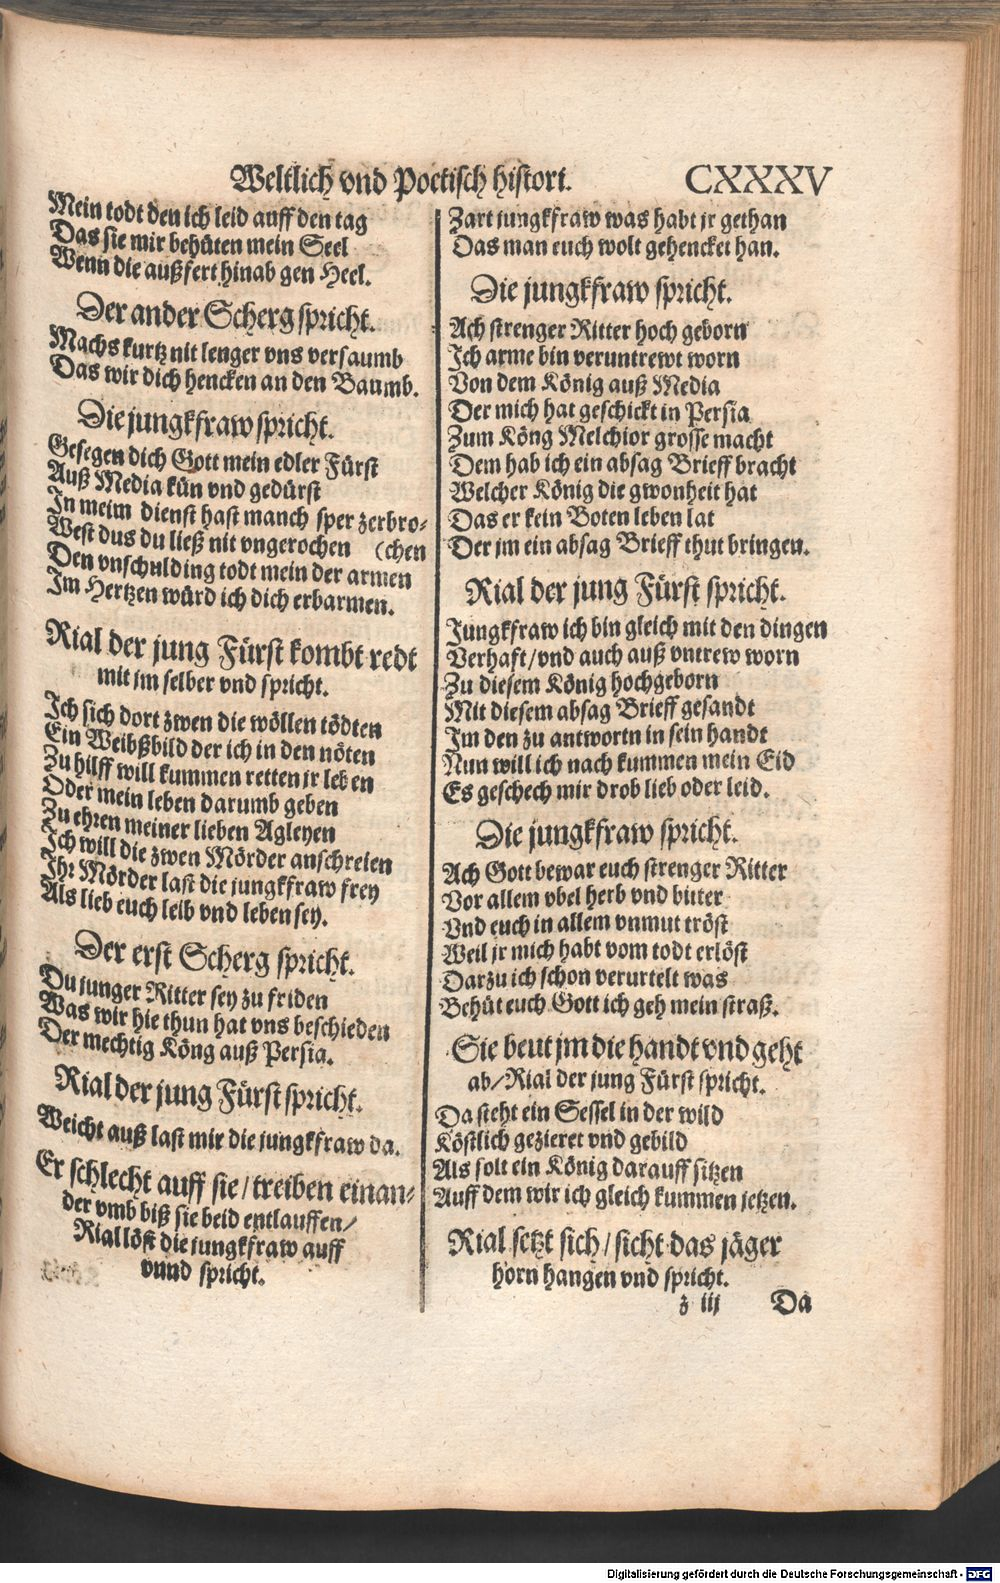 Weltlich vnd Poetisch histori. CXXXV
Mein todt den ich leid auff den tag
Das sie mir behüten mein Seel
Wenn die außfert hinab gen Heel.
Der ander Scherg spricht.
Machs kurtz nit lenger vns versaumb
Das wir dich hencken an den Baumb.
Die jungkfraw spricht.
Gesegen dich Gott mein edler Fürst
Auß Media kün vnd gedürst
In meim dienst hast manch sper zerbro-
West dus du ließ nit vngerochen (chen
Den vnschulding todt mein der armen
Im Hertzen würd ich dich erbarmen.
Rial der jung Fürst kombt redt
mit jm selber vnd spricht.
Ich sich dort zwen die wöllen tödten
Ein Weibßbild der ich in den nöten
Zu hilff will kummen retten jr leben
Oder mein leben darumb geben
Zu ehren meiner lieben Agleyen
Ich will die zwen Mörder anschreien
Ihr Mörder last die jungkfraw frey
Als lieb euch leib vnd leben sey.
Der erst Scherg spricht.
Du junger Ritter sey zu friden
Was wir hie thun hat vns beschieden
Der mechtig Köng auß Persia.
Rial der jung Fürst spricht.
Weicht auß last mir die jungkfraw da.
Er schlecht auff sie/ treiben einan-
der vmb biß sie beid entlauffen/
Rial löst die jungkfraw auff
vnnd spricht.
Zart jungkfraw was habt jr gethan
Das man euch wolt gehencket han.
Die jungkfraw spricht.
Ach strenger Ritter hoch geborn
Ich arme bin veruntrewt worn
Von dem König auß Media
Der mich hat geschickt in Persia
Zum Köng Melchior grosse macht
Dem hab ich ein absag Brieff bracht
Welcher König die gwonheit hat
Das er kein Boten leben lat
Der jm ein absag Brieff thut bringen.
Rial der jung Fürst spricht.
Jungkfraw ich bin gleich mit den dingen
Verhaft/ vnd auch auß vntrew worn
Zu diesem König hochgeborn
Mit diesem absag Brieff gesandt
Im den zu antwortn in sein handt
Nun will ich nach kummen mein Eid
Es geschech mir drob lieb oder leid.
Die jungkfraw spricht.
Ach Gott bewar euch strenger Ritter
Vor allem vbel herb vnd bitter
Vnd euch in allem vnmut tröst
Weil jr mich habt vom todt erlöst
Darzu ich schon verurtelt was
Behüt euch Gott ich geh mein straß.
Sie beut jm die handt vnd geht
ab/ Rial der jung Fürst spricht.
Da steht ein Sessel in der wild
Köstlich gezieret vnd gebild
Als solt ein König darauff sitzen
Auff dem wir ich gleich kummen jetzen.
Rial setzt sich/ sicht das jäger
horn hangen vnd spricht.
z iij Da
Digitalisierung gefördert durch die Deutsche Forschungsgemeinschaft - DFG